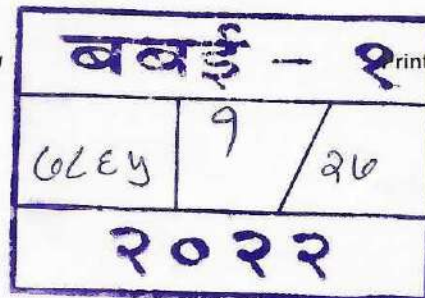 बबई - १
rint
७८६५ १ / २७
२०२२